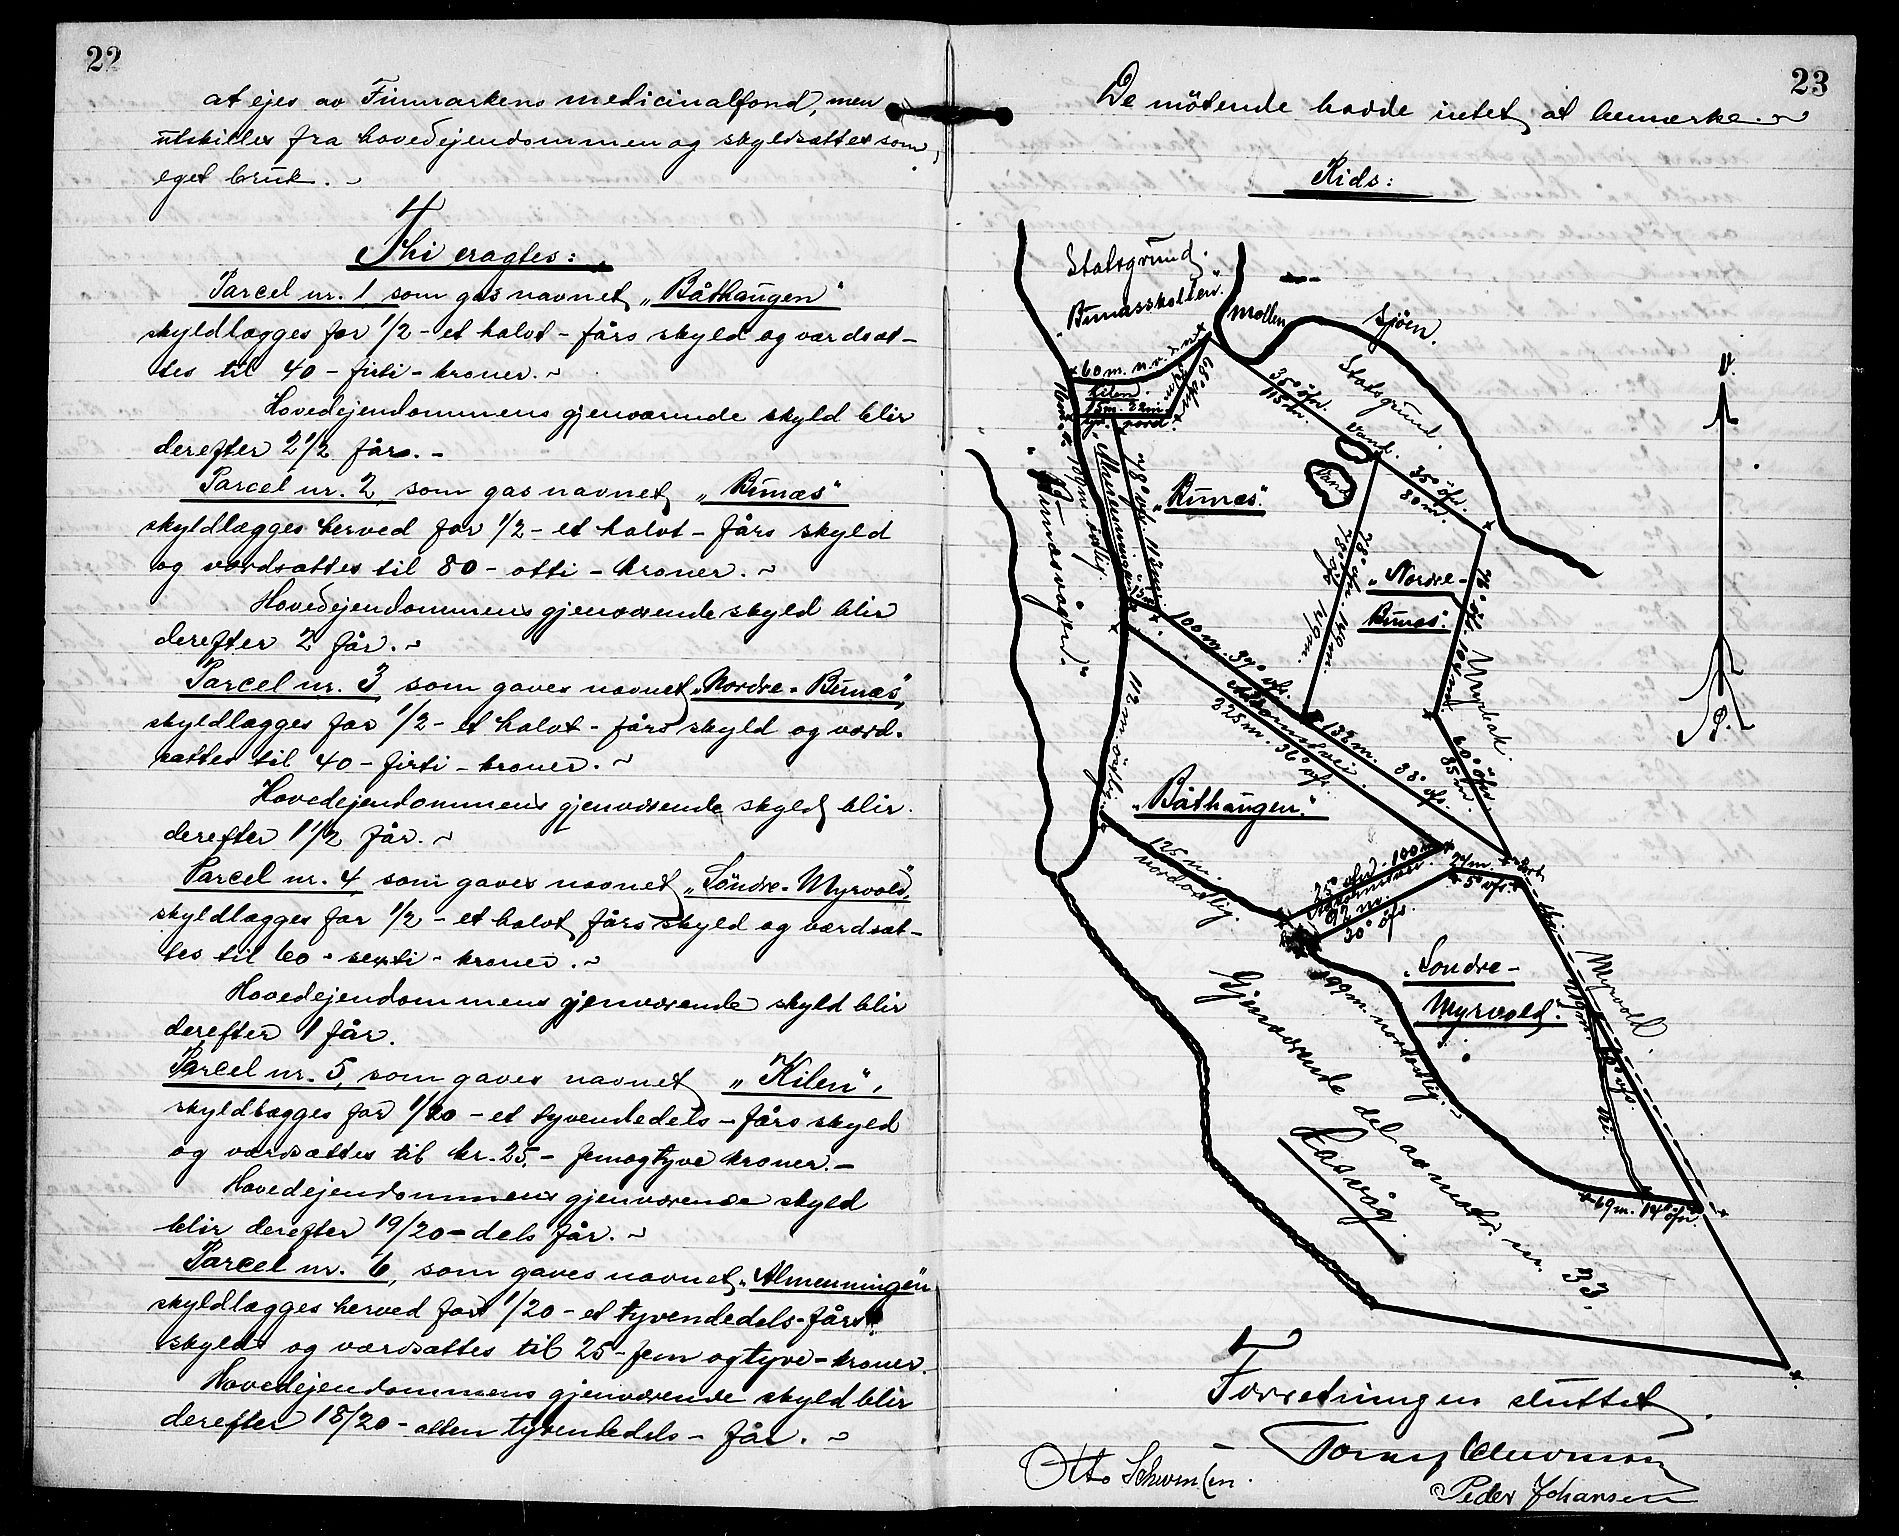 22
at ejes av Finmarkens medicinalfond, men
utskilles fra hovedejendommen og skyldsættes som
eget bruk.
Thi eragtes:
Parcel nr. 1 som gas navnet "Båthaugen"
skyldlægges for 1/2 - et halvt - fårs skyld og værdsæt-
tes til 40 - firti - kroner.
Hovedejendommens gjenværende skyld blir
derefter 2 1/2 får. -
Parcel nr. 2 som gas navnet "Bumæs"
skyldlægges herved for 1/2 - et halvt - fårs skyld
og værdsættes til 80 - otti - kroner.
Hovedejendommens gjenværende skyld blir
derefter 2 får.
Parcel nr. 3 som gaves navnet "Nordre-Bumæs"
skyldlægges for 1/2 - et halvt - fårs skyld og værd-
sættes til 40 - firti - kroner.
Hovedejendommens gjenværende skyld blir
derefter 1 1/2 får.
Parcel nr. 4 som gaves navnet "Söndre-Myrvold",
skyldlægges for 1/2 - et halvt fårs skyld og værdsæt-
tes til 60 - sexti - kroner.
Hovedejendommens gjenværende skyld blir
derefter 1 får.
Parcel nr. 5, som gaves navnet "Kilen",
skyldlægges for 1/20 - et tyvendedels - fårs skyld
og værdsættes til kr. 25,- femogtyve kroner. -
Hovedejendommens gjenværende skyld
blir derefter 19/20 - dels får.
Parcel nr. 6, som gaves navnet "Almenningen"
skyldlægges herved for 1/20 - et tyvendedels - fårs
skyld og værdsættes til 25 - fem og tyve - kroner.
Hovedejendommens gjenværende skyld blir
derefter 18/20 - atten tyvendedels - får.
23
De mötende hadde intet at bemærke.
Rids:
Statsgrund.
"Bumæsskollen".
Mollen
Sjöen.
Statsgrund.
v.
60 m.
Kilen
15 m. 22 m.
nord.
35° öfn.
115 m.
Vand.
Vand
35° öfn.
80 m.
"Almenningen"
100 m.
"Bumæs"
"Bumæsvågen"
78° öfn. 149 m.
149 m.
"Nordre-
Bumæs".
Myrbæk.
60° öfn.
85 m.
100 m. 37° vfs.
Adkomstvei.
325 m. 36° vfs.
138 m. 38° vfs.
112 m. östlig.
"Båthaugen".
125 m.
nordostlig.
25° 100 m.
Adkomstvei.
92 m.
30° öfs.
24 m.
5° vfs.
"Söndre-
Myrvold".
Myrvold
199 m. nordostlig.
Gjenværende del av matr. nr. 33.
Lasvåg
69 m. 14° öfn.
ö.
Forretningen sluttet.
Otto
Peder Johansen